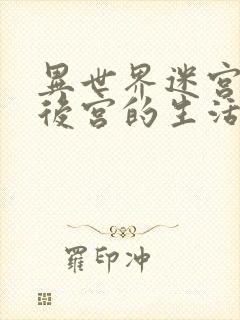 異世界迷宮
後宮的生活
羅印冲